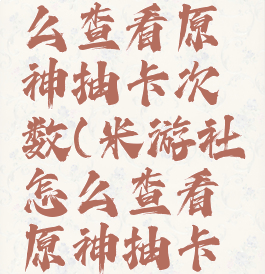 么查看原
神抽卡次
数(米游社
怎么查看
原神抽卡